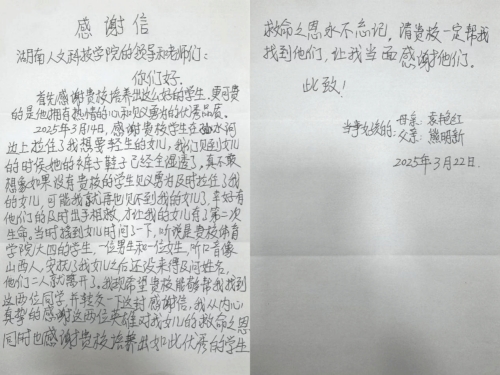 感谢信
湖南人文科技学院的领导和老师们：
你们好。
首先感谢贵校培养出这么好的学生，更可贵
的是他拥有热情的心和见义勇为的优秀品质。
2025年3月14日，感谢贵校学生在涟水河
边上拉住了我想要轻生的女儿，我们见到女儿
的时候她的裤子鞋子已经全湿透了，真不敢
想象如果没有贵校的学生见义勇为及时拉住了我
的女儿，可能我就再也见不到我的女儿了，幸好有
他们的及时出手相救，才让我的女儿有了第二次
生命。当时找到女儿时问了一下，听说是贵校体育
学院大四的学生，一位男生和一位女生，听口音像
山西人，交救了我女儿之后还没来得及问姓名，
他们二人就离开了。我现希望贵校能够帮我找到
这两位同学，并转交一下这封感谢信，我从内心
真挚的感谢这两位英雄对我女儿的救命之恩
同时也感谢贵校培养出如此优秀的学生
救命之恩永不忘记。请贵校一定帮我
找到他们，让我当面感谢他们。
此致！
母亲：袁艳红
父亲：熊明新
2025年3月22日